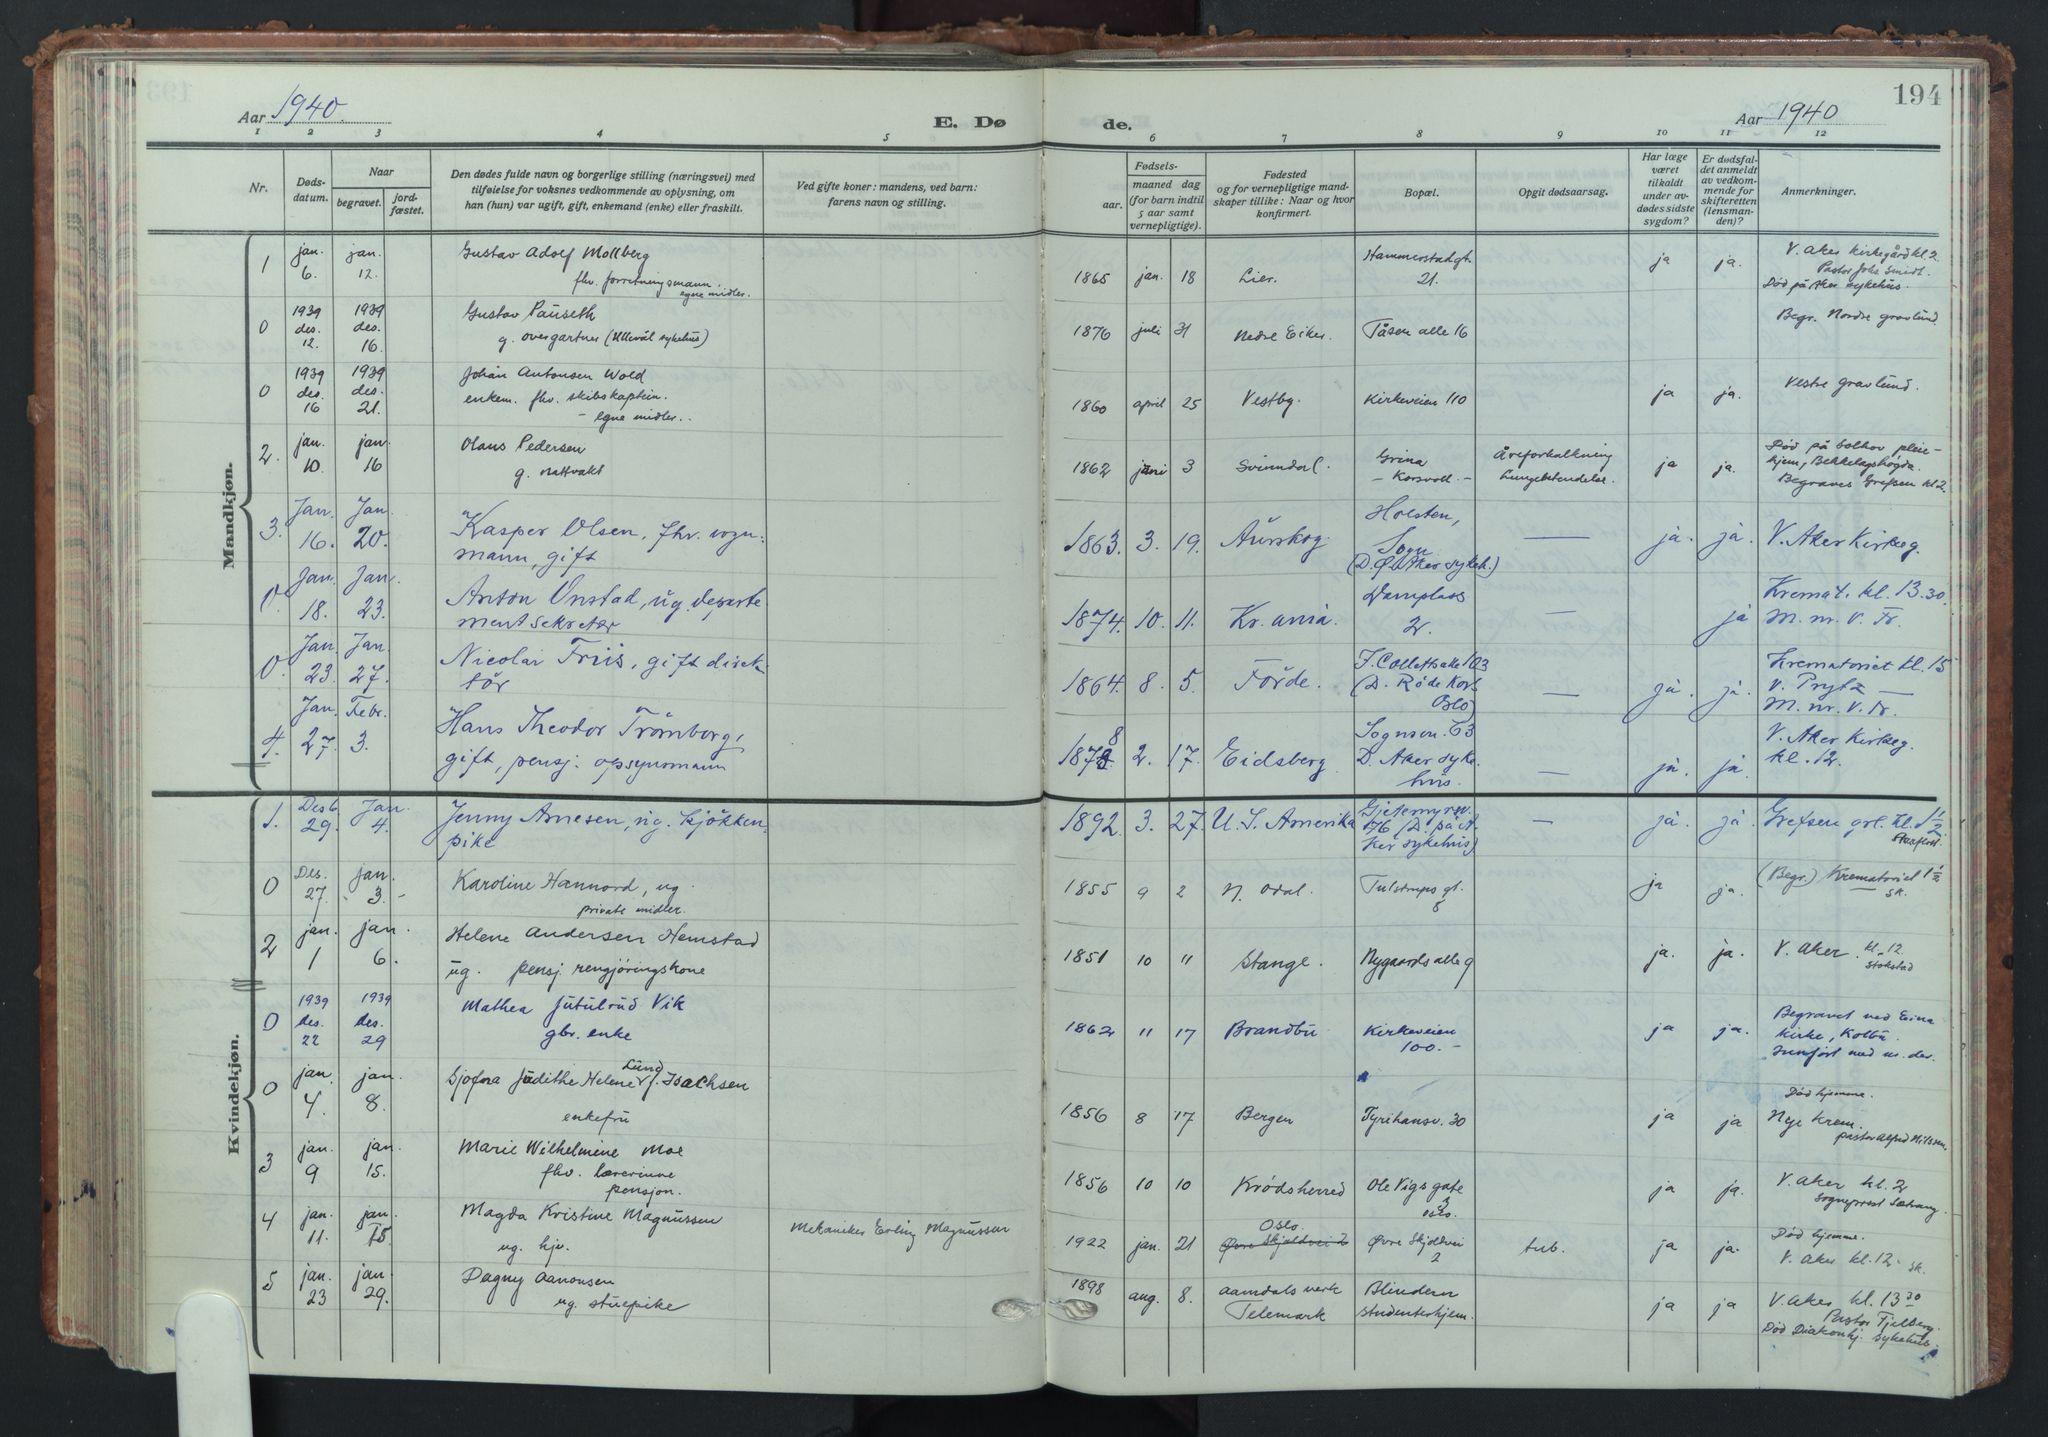 193
194
Aar 1940.
E. Dø
de.
Aar 1940
1 2 3 4 5
6 7 8 9 10 11 12
Nr.
Døds-
datum.
Naar
begravet.
jord-
fæstet.
Den dødes fulde navn og borgerlige stilling (næringsvei) med
tilføielse for voksnes vedkommende av oplysning, om
han (hun) var ugift, gift, enkemand (enke) eller fraskilt.
Ved gifte koner: mandens, ved barn:
farens navn og stilling.
Fødsels-
aar.
maaned dag
(for barn indtil
5 aar samt
vernepligtige).
Fødested
og for vernepligtige mand-
skaper tillike: Naar og hvor
konfirmert.
Bopæl.
Opgit dødsaarsag.
Har læge
været
tilkaldt
under av-
dødes sidste
sygdom?
Er dødsfal-
det anmeldt
av vedkom-
mende for
skifteretten
(lensman-
den)?
Anmerkninger.
Mandkjøn.
1 jan. 6. jan. 12. Gustav Adolf Mollberg
fhv. forretningsmann.
egne midler.
1865 jan. 18 Lier. Hammerstadgt. 21. ja ja.
V. Aker kirkegård kl. 2
Pastor Johs Smidt.
Død på Aker sykehus.
0 1939 des. 12. 1939 des. 16. Gustav Pauseth
g. overgartner (Ullevål sykehus)
1876 juli 31 Nedre Eiker. Tåsen alle 16
Begr. Nordre gravlund.
0 1939 des. 16 1939 des. 21. Johan Antonsen Wold
enkem. fhv. skibskaptein.
- egne midler..
1860 april 25 Vestby. Kirkeveien 110 ja ja.
Vestre gravlund.
2. jan. 10. jan 16 Olaus Pedersen
g. nattvakt
1862 juni 3 Svinndal. Grina
- Korsvoll. -
Åreforkalkning
Lungebetendelse.
ja ja.
Død på Solhov pleie-
hjem, Bekkelagshøgda.
Begraves Grefsen kl 2.
3. Jan. 16. Jan. 20. Kasper Olsen, fhv. vogn-
mann, gift
1863. 3. 19. Aurskog. Holsten,
Sogn.
(D. på Aker sykeh.)
— ja. ja. V. Aker Kirkeg.
0. Jan. 18. Jan. 23. Anton Onstad, ug. departe-
mentsekretær
1874. 10. 11. Kr.ania. Damplass
2.
— ja
Kremat. kl. 13.30.
M. nr. V. Fr.
0. Jan. 23. Jan. 27. Nicolai Friis, gift direk-
tør
1864. 8. 5. Førde. J. Collettsalle 103
(D. Røde Kors
Oslo)
— ja. ja.
Krematoriet kl. 15
v. Prytz —
M. nr. V. Fr.
4. Jan. 27. Febr. 3. Hans Theodor Trömborg,
gift, pensj. opsynsmann
1878. 2. 17. Eidsberg Sognsvn. 63
D. Aker syke-
hus.
— ja. ja.
V. Aker Kirkeg.
kl. 12.
Kvindekjøn.
1. Desb. 29. Jan. 4. Jenny Arnesen, ug. kjøkken-
pike
1892. 3. 27. U.S. Amerika Gjetemyrsv.
176 (D. på A-
ker sykehus)
— ja. ja. Grefsen grl. kl. 1 1/2
0 Des. 27. jan. 3. Karoline Hannord, ug.
private midler.
1855 9 2 N. Odal. Tulstrups gt.
8
ja ja.
(Begr.) Krematoriet 1 1/2
sk.
2 jan. 1 jan. 6. Helene Andersen Hemstad
ug. pensj. rengjøringskone
1851 10 11 Stange. Nygaards alle 9 ja. ja.
V. Aker. kl. 12
Stokstad
0 1939 des. 22 1939 des. 29 Mathea Jutulrud Vik
gbr. enke
1862 11 17 Brandbu Kirkeveien
100. -
ja ja.
Begravet ved Eina
kirke, Kolbu.
Innført med nr. der.
0 jan. 4. jan. 8. Sjofna Judithe Helene Lund f. Isachsen
enkefru
1856 8 17 Bergen Tyrihansv. 30 ja ja
Død hjemme.
Nye Krem.
pastor Alfred Nilssen.
3 jan. 9 jan. 15. Marie Wilhelmine Moe
fhv. lærerinne
pensjon.
1856 10 10 Krødsherred Ole Vigs gate
Oslo.
ja ja.
V. Aker kl. 2
Sogneprest
4 jan. 11. jan. 15 Magda Kristine Magnussen
ug. hjv.
Mekaniker Erling Magnussen
1922 jan. 21 Oslo.
Øvre Skjoldvei 2
Øvre Skjoldvei
2
tub. ja ja.
Død hjemme.
V. Aker kl. 12. sk.
5 jan. 23 jan. 29. Dagny Aanonsen
ug. stuepike
1898 aug. 8. Aamdals verk
Telemark
Blindern
studenterhjem.
ja ja
V. Aker kl. 13 30
Pastor Fjelberg.
Død Diakonhj. sykehus.